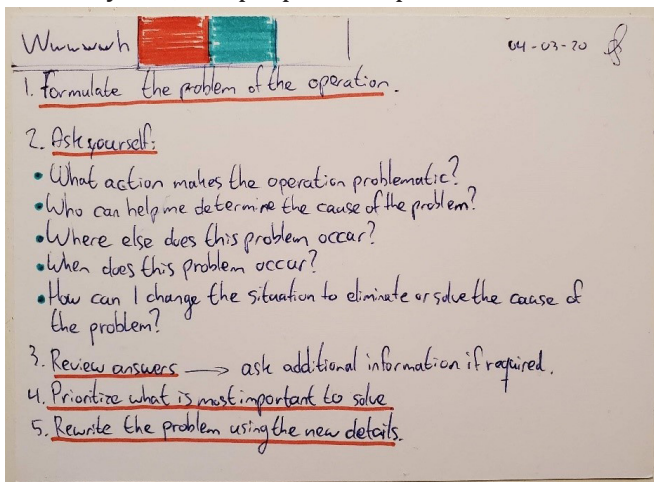 Wwwwwh
04-03-20
1. Formulate the problem of the operation.
2. Ask yourself:
• What action makes the operation problematic?
• Who can help me determine the cause of the problem?
• Where else does this problem occur?
• When does this problem occur?
• How can I change the situation to eliminate or solve the cause of
the problem?
3. Review answers → ask additional information if required.
4. Prioritize what is most important to solve
5. Rewrite the problem using the new details.